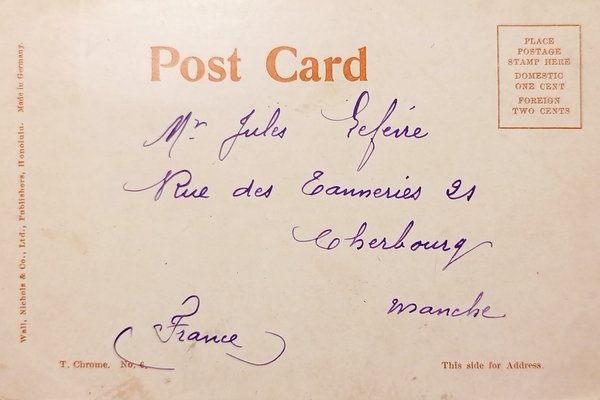 Wall, Nichols & Co., Ltd., Publishers, Honolulu. Made in Germany.
Post Card
PLACE
POSTAGE
STAMP HERE
DOMESTIC
ONE CENT
FOREIGN
TWO CENTS
Mr Jules Lefèvre
Rue des Tanneries 21
Cherbourg
Manche
France
T. Chrome. No. 6.
This side for Address.